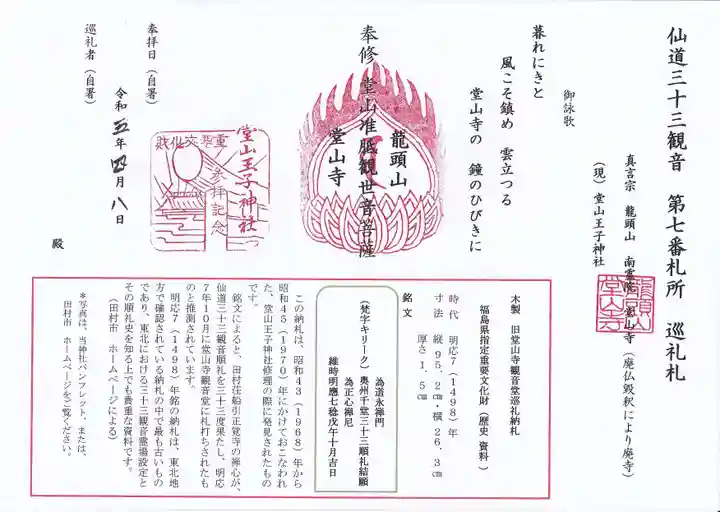 仙道三十三観音　第七番札所　巡礼札
真言宗　龍頭山　南霊院　堂山寺（廃仏毀釈により廃寺）
（現）堂山王子神社
御詠歌
暮れにきと
風こそ鎮め　雲立つる
堂山寺の　鐘のひびきに
龍頭山
奉修　堂山准胝観世音菩薩
堂山寺
堂山王子神社
参拝記念
奉拝日（自署）
令和五年四月八日
巡礼者（自署）
殿
木製　旧堂山寺観音堂巡礼納札
福島県指定重要文化財（歴史資料）
時代　明応7（1498）年
寸法　縦95.2㎝・横26.3㎝
厚さ1.5㎝
銘文
為道永禅門
（梵字キリーク）奥州千堂三十三順礼結願
為正心禅尼
維時明應七稔戊午十月吉日
この納札は、昭和43（1968）年から
昭和45（1970）年にかけておこなわれ
た、堂山王子神社修理の際に発見されたもの
です。
銘文によると、田村庄船引正覚寺の禅心が、
仙道三十三観音順礼を三十三度果たし、明応
7年10月に堂山寺観音堂に札打ちされたも
のと推測されています。
明応7（1498）年銘の納札は、東北地
方で確認されている納札の中で最も古いもの
であり、東北における三十三観音霊場設定と
その順礼史を知る上でも貴重な資料です。
（田村市　ホームページによる）
＊写真は、当神社パンフレット、または、
田村市　ホームページをご覧ください。